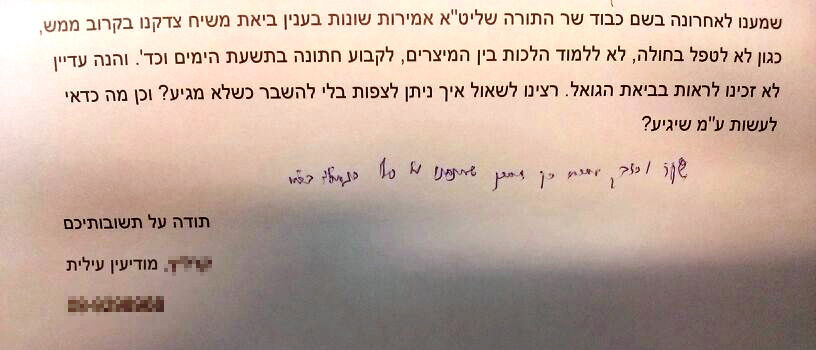 שמענו לאחרונה בשם כבוד שר התורה שליט"א אמירות שונות בענין ביאת משיח צדקנו בקרוב ממש,
כגון לא לטפל בחולה, לא ללמוד הלכות בין המיצרים, לקבוע חתונה בתשעת הימים וכד'. והנה עדיין
לא זכינו לראות בביאת הגואל. רצינו לשאול איך ניתן לצפות בלי להשבר כשלא מגיע? וכן מה כדאי
לעשות ע"מ שיגיע?
שקר וכזב
תודה על תשובותיכם
מודיעין עילית